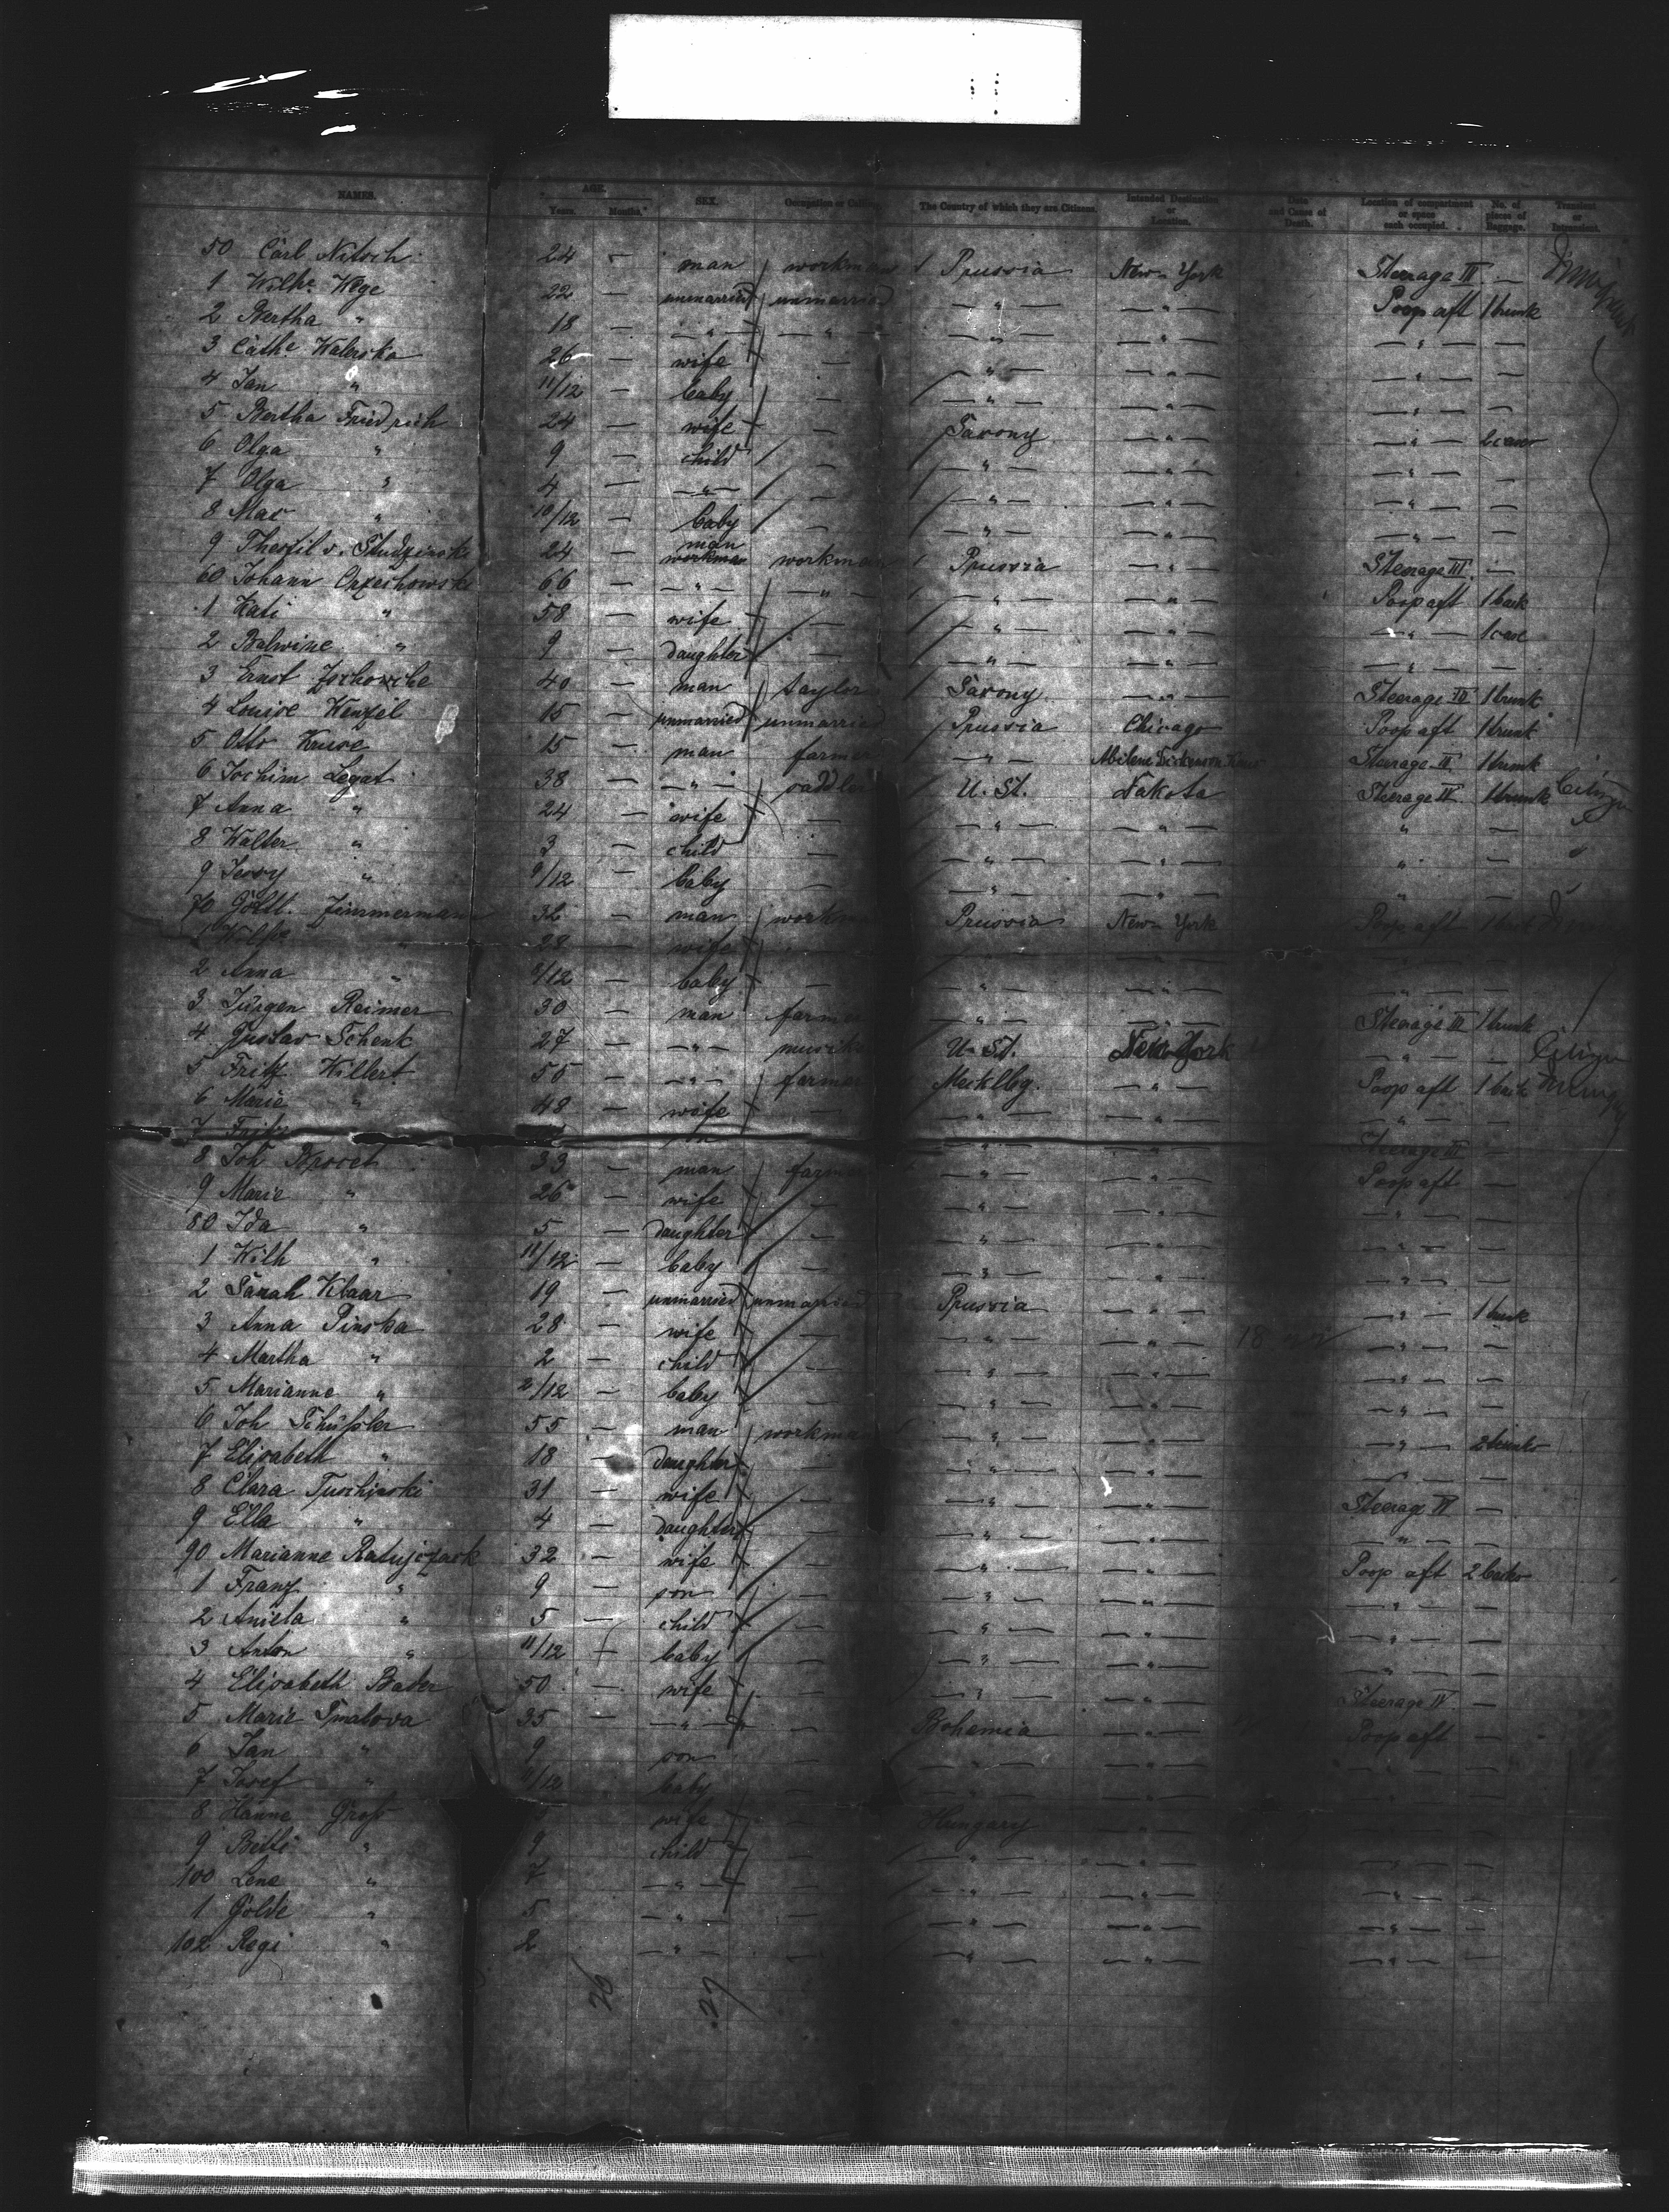 NAMES. AGE. Years. Months. SEX. Occupation or Calling. The Country of which they are Citizens. Intended Destination or Location. Date and Cause of Death. Location of compartment or space each occupied. No. of pieces of Baggage. Transient or Intransient.
50 Carl Nitsch 24 — man workman Prussia New York Steerage III —
1 Wilhe. Wege 22 — unmarried unmarried —"— —"— Poop aft 1 trunk
2 Bertha " 18 — —"— —"— —"— —"— —"— —
3 Cathe Walerska 26 — wife — —"— —"— —"— —
4 Jan " 11/12 — baby — —"— —"— —"— —
5 Bertha Friedrich 24 — wife — Saxony —"— —"— 2 cases
6 Olga " 9 — child — —"— —"— —"— —
7 Olga " 4 — —"— — —"— —"— —"— —
8 Max " 10/12 — baby — —"— —"— —"— —
9 Theofil v. Studzinski 24 — man workman workman Prussia —"— Steerage III —
60 Johann Orzechowski 66 — —"— —"— —"— —"— Poop aft 1 bask
1 Kati " 58 — wife — —"— —"— —"— 1 case
2 Balwine " 9 — daughter — —"— —"— —"— —
3 Ernst 40 — man taylor Saxony —"— Steerage III 1 trunk
4 Louise Wenzel 15 — unmarried unmarried Prussia Chicago Poop aft 1 trunk
5 Otto Kruse 15 — man farmer —"— Abilene Dickenson Steerage II 1 trunk
6 Jochim Legat 38 — —"— saddler U. St. Dakota Steerage IV 1 trunk Citizen
7 Anna " 24 — wife — —"— —"— " — "
8 Walter " 3 — child — —"— —"— " — "
9 Jessy " 9/12 — baby — —"— —"— " — "
70 Gottl. Zimmermann 32 — man workman Prussia New York Poop aft
1 " 28 — wife — —"— —"— —"— —
2 Anna " /12 — baby — —"— —"— —"— —
3 Jürgen Reimer 30 — man farmer —"— —"— Steerage III 1 trunk
4 Gustav Schenk 27 — —"— U. St. New York —"— — Citizen
5 Fritz Hillert 55 — —"— farmer Mecklbg. —"— Poop aft 1 bask
6 Marie " 48 — wife — —"— —"— —"— —
7 Fritz —"— —"— Steerage III —
8 Joh 33 — man farmer —"— —"— Poop aft —
9 Marie " 26 — wife — —"— —"— —"— —
80 Ida " 5 — daughter — —"— —"— —"— —
1 Wilh " 11/12 — baby — —"— —"— —"— —
2 Sarah Klaar 19 — unmarried unmarried Prussia —"— —"— 1 trunk
3 Anna Pinska 28 — wife — —"— —"— —"— —
4 Martha " 2 — child — —"— —"— —"— —
5 Marianne " 2/12 — baby — —"— —"— —"— —
6 Joh Schüssler 55 — man workman —"— —"— —"— 2 trunks
7 Elisabeth " 18 — daughter — —"— —"— —"— —
8 Clara Tuschinski 31 — wife — —"— —"— Steerage IV —
9 Ella " 4 — daughter — —"— —"— —"— —
90 Marianne Ratajczack 32 — wife — —"— —"— Poop aft 2 basks
1 Franz " 9 — son — —"— —"— —"— —
2 Aniela " 5 — child — —"— —"— —"— —
3 Anton " 11/12 — baby — —"— —"— —"— —
4 Elisabeth Bader 50 — wife — —"— —"— Steerage IV —
5 Marie Smatova 35 —"— — Bohamia —"— Poop aft —
6 Jan " 9 son — —"— —"— —"— —
7 Josef " 11/12 baby — —"— —"— —"— —
8 Hanne Gross wife — Hungary —"— —"— —
9 Betti " 9 child — —"— —"— —"— —
100 Lene " 7 —"— — —"— —"— —"— —
1 Golde " 5 —"— — —"— —"— —"— —
102 Regi " 2 —"— — —"— —"— —"— —
26 27